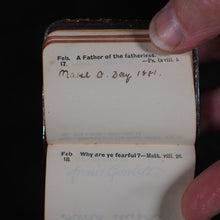 Feb. 17. A Father of the fatherless.
—Ps. lxviii. 5.
Mabel O. Day 1881.
Feb. 18. Why are ye fearful?—Matt. viii. 26.